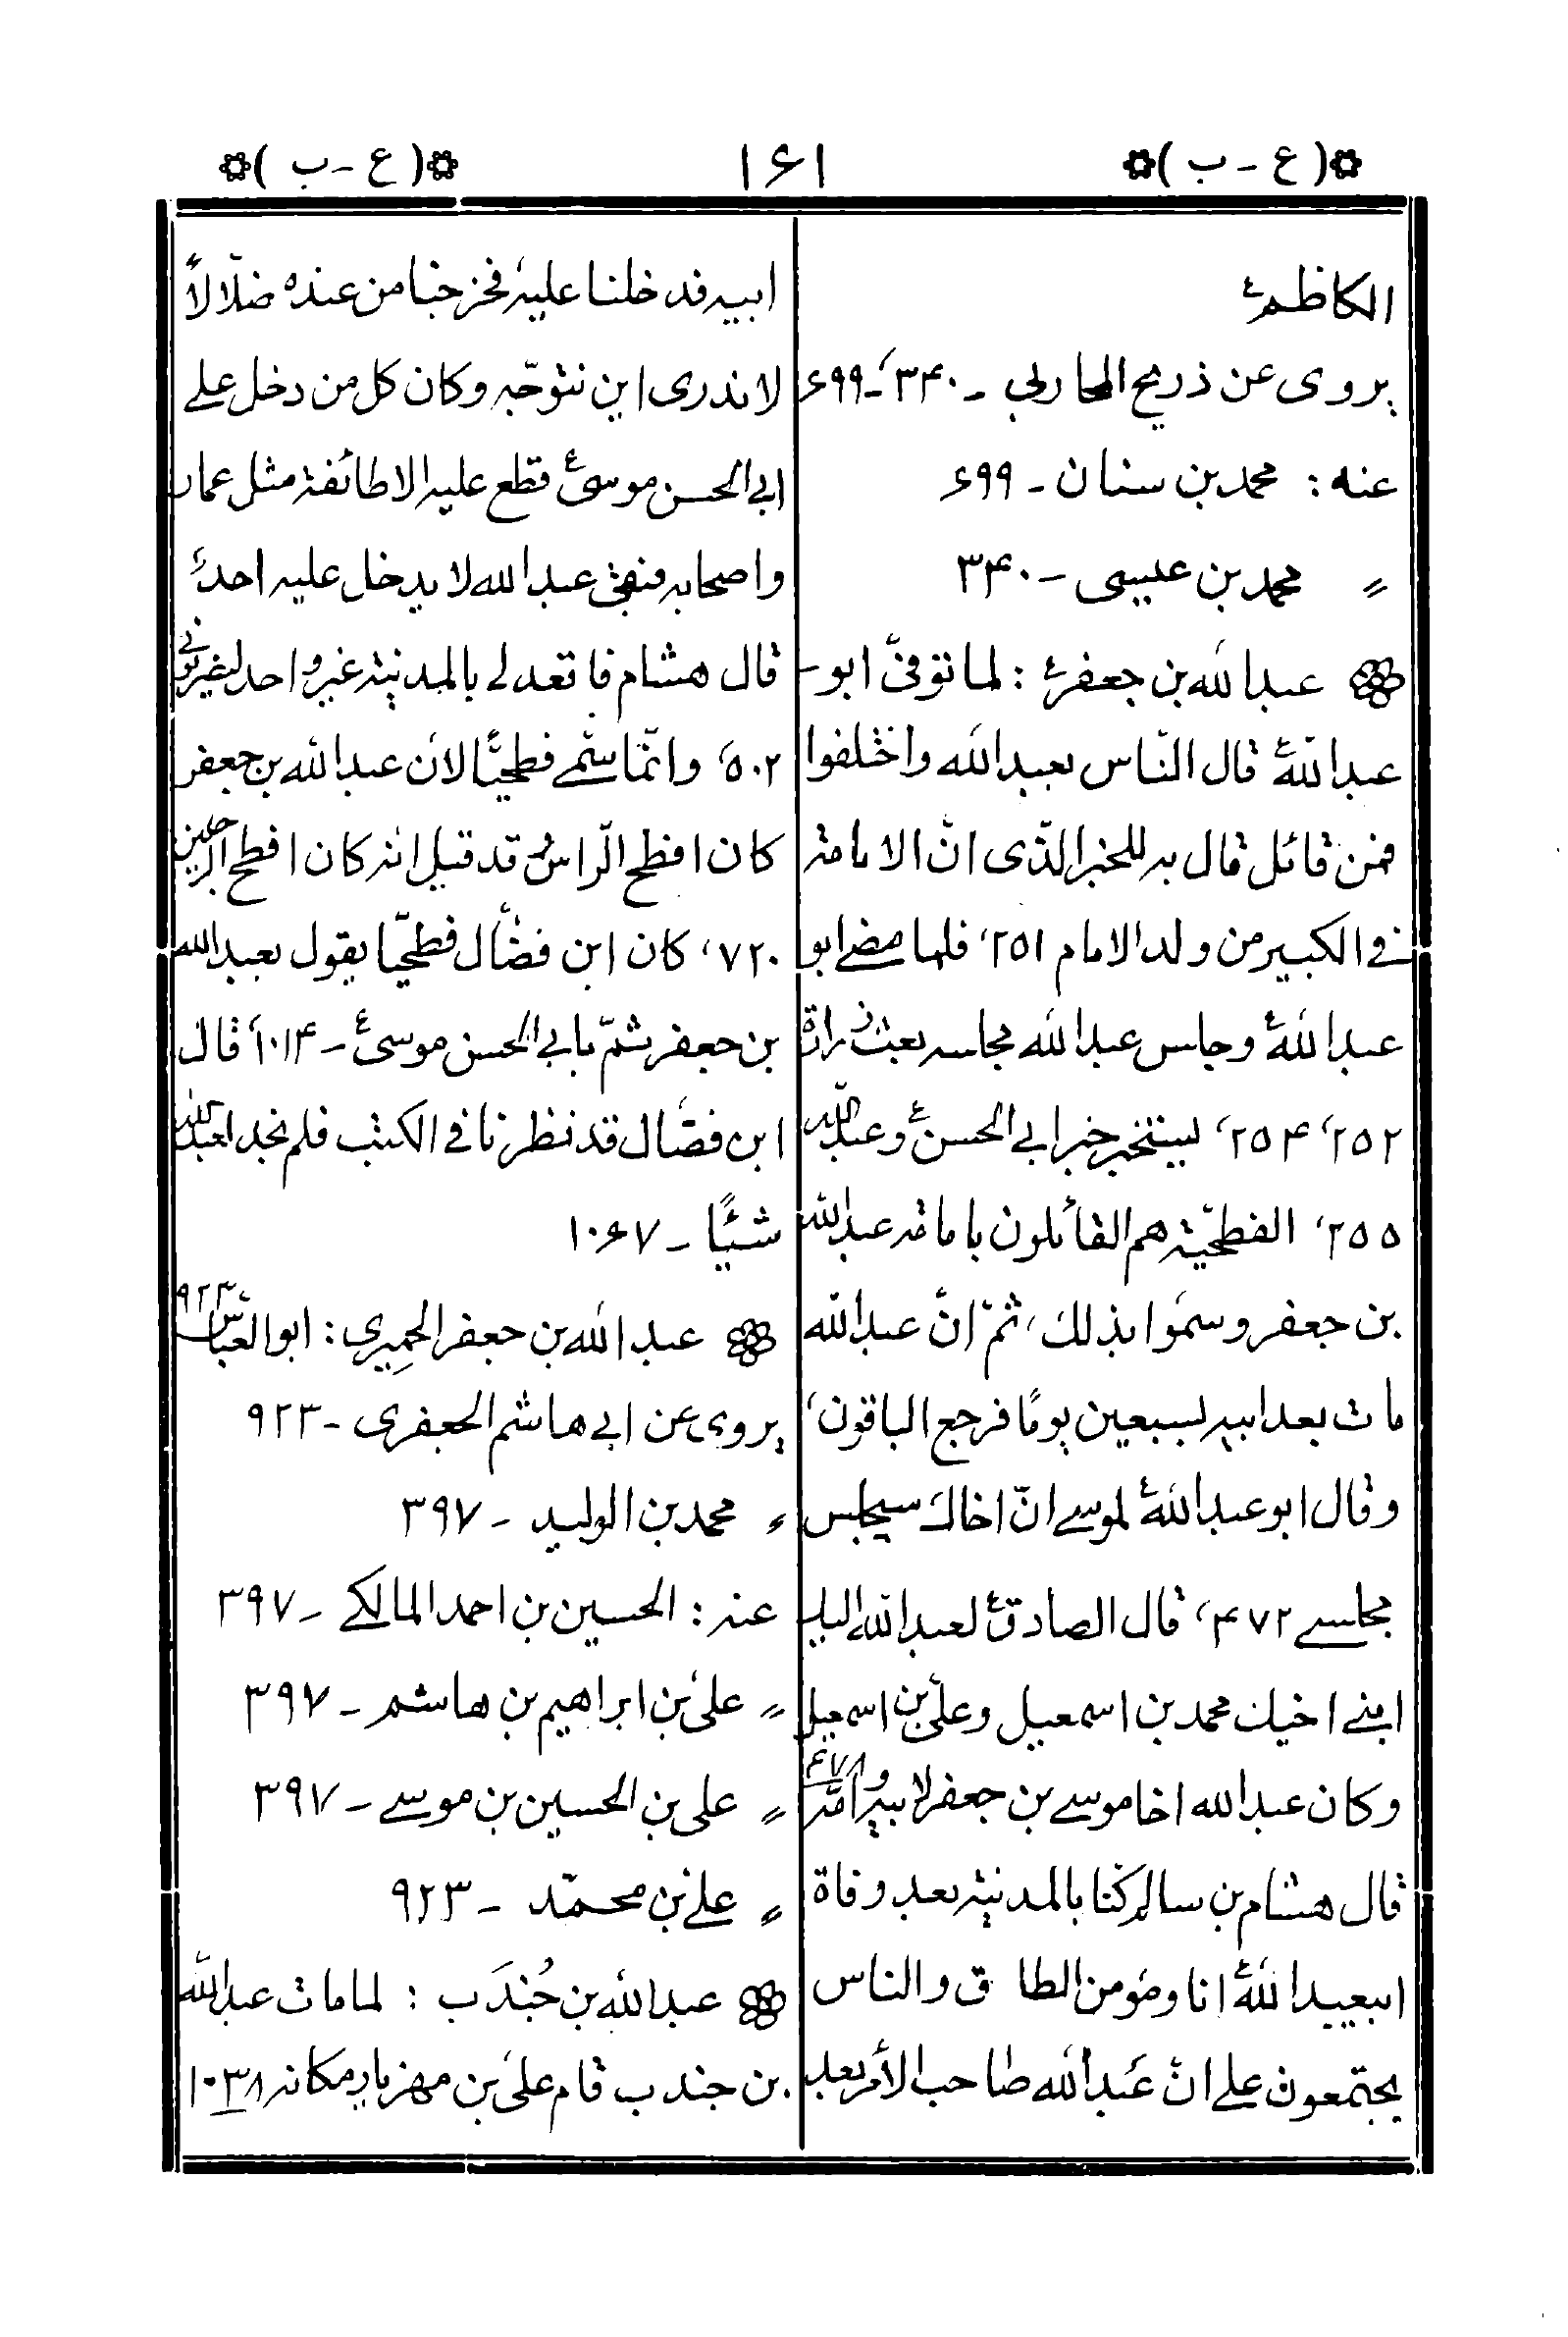 (ع - ب) ۱۶۱ (ع - ب)
الکاظم ع
یروی عن ذریح المحاربی - ۳۴۰، - ۶۹۹
عنه : محمد بن سنان - ۶۹۹
〃 محمد بن عیسی - ۳۴۰
عبد الله بن جعفر ع : لما توفّی ابو-
عبد الله ع قال النّاس بعبد الله واختلفوا
فمن قائل قال به للخبر الذّی انّ الامامة
فی الکبیر من ولد الامام ۲۵۱، فلما مضی ابو
عبد الله ع وجلس عبد الله مجلسه بعث زرارة
۲۵۲، ۲۵۴، یستخبر خبر ابی الحسن ع وعبد الله
۲۵۵، الفطحیّة هم القائلون بامامة عبد الله
بن جعفر وسمّوا بذلك، ثمّ انّ عبد الله
مات بعد ابیه بسبعین یومًا فرجع الباقون،
وقال ابو عبد الله ع لموسی انّ اخاك سیجلس
مجلسی ۴۷۲، قال الصادق ع لعبد الله الیك
ابنی اخیك محمد بن اسمعیل وعلیّ بن اسمعیل
وکان عبد الله اخا موسی بن جعفر لابیه وامّه ۴۷۸
قال هشام بن سالم کنّا بالمدینة بعد وفاة
ابیعبد الله ع انا ومؤمن الطاق والناس
یجتمعون علی انّ عبد الله صاحب الأمر بعد
ابیه فدخلنا علیه فخرجنا من عنده ضلّالاً
لا ندری این نتوجّه وکان کل من دخل علی
ابی الحسن موسی ع قطع علیه الا طائفة مثل عمار
واصحابه فبقی عبد الله لا یدخل علیه احد
قال هشام فاقعد لی بالمدینة غیر واحد لیضربونی
۵۰۲، وانّما سمّی فطحیًّا لان عبد الله بن جعفر
کان افطح الرّاس وقد قیل انه کان افطح الرجلین
۷۲۰، کان ابن فضّال فطحیًّا یقول بعبد الله
بن جعفر ثمّ بابی الحسن موسی ع - ۱۰۱۴، قال
ابن فضّال قد نظرنا فی الکتب فلم نجد لعبد الله
شیئًا - ۱۰۶۷
عبد الله بن جعفر الحمیری : ابو العبّاس ۹۲۳
یروی عن ابی هاشم الجعفری - ۹۲۳
〃 محمد بن الولید - ۳۹۷
عنه : الحسین بن احمد المالکی - ۳۹۷
〃 علی بن ابراهیم بن هاشم - ۳۹۷
〃 علی بن الحسین بن موسی - ۳۹۷
〃 علی بن محمّد - ۹۲۳
عبد الله بن جُندَب : لما مات عبد الله
بن جندب قام علی بن مهزیار مکانه ۱۰۳۸